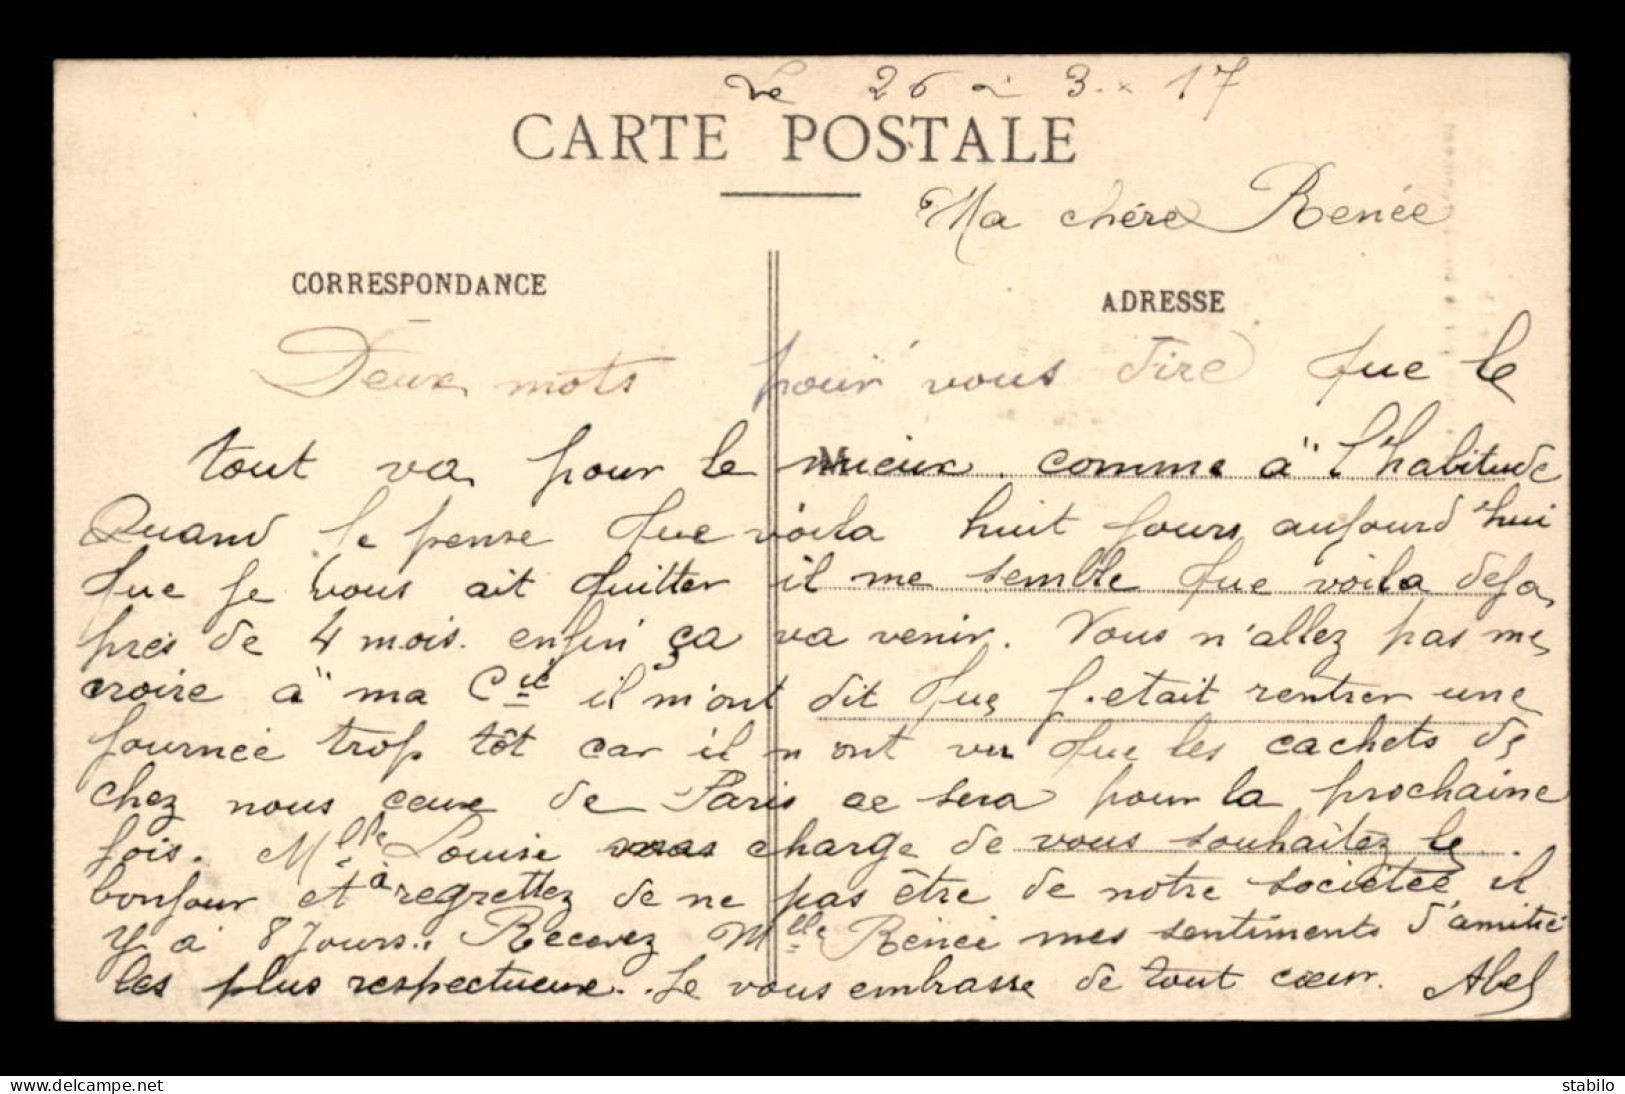 Le 26 à 3. x 17
CARTE POSTALE
Ma chére Renée
CORRESPONDANCE
ADRESSE
Deux mots pour vous dire que le
tout va pour le mieux. comme à l'habitude
Quand je pense que voila huit jours aujourd'hui
que je vous ait quitter il me semble que voila deja
près de 4 mois. enfin ça va venir. Vous n'allez pas me
croire à ma Cie il m'ont dit que j.etait rentrer une
journée trop tôt car il n ont vu que les cachets de
chez nous ceux de Paris ce sera pour la prochaine
fois. Mlle Louise charge de vous souhaitez le
bonjour et à regrettez de ne pas être de notre sociétée il
y a 8 Jours.. Recevez Mlle Renée mes sentiments d'amitié
les plus respectueux. Je vous embrasse de tout cœur. Abel
stabilo